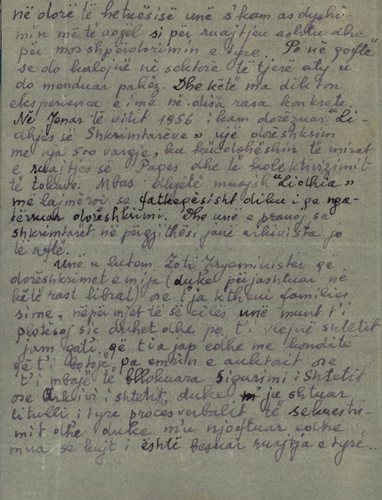 në dorë të hetuësisë unë s'kam as dyshi-
min më të vogel si për ruajtjen ashtu dhe
për mos shpërdorimin e tyre. Po në qoftë
se do kalojnë në sektorë të tjerë aty u
do menduar pakëz. Dhe këtë ma dikton
eksperienca e ime në disa rasa konkrete.
Në Jenar të vitit 1956 i kam dorëzuar "Li-
dhjes së Shkrimtarëve" një dorëshkrim
me nja 500 vargje, ku këndohëshin të mirat
e ruajtjes së Paqes dhe të kolektivizimit
të tokave. Mbas dhjetë muajsh "Lidhia"
më lajmëroi se fatkeqësisht diku i qe nga-
tërruar dorëshkrimi. Dhe unë e pranoj se
shkrimtarët në përgjithësi janë arkivista jo
të aftë.
Unë u lutem Zoti Kryeministër që
dorëshkrimet e mija (duke përjashtuar në
këtë rast librat) ose t'ja ktheni familjes
sime, nëpërmjet të së cilës unë mund t'i
plotësoj siç duhet dhe po t'i vlejnë shtetit
jam gati që t'ia jap edhe me konditë
që t'i botojë pa emrin e auktorit ose
t'i mbajë të bllokuara Sigurimi i Shtetit
ose Arkivi i shtetit, duke ja shtuar
titulli i tyre procesverbalit të sekuestri-
mit dhe duke m'u njoftuar edhe
mua se kujt i është besuar ruajtja e tyre..